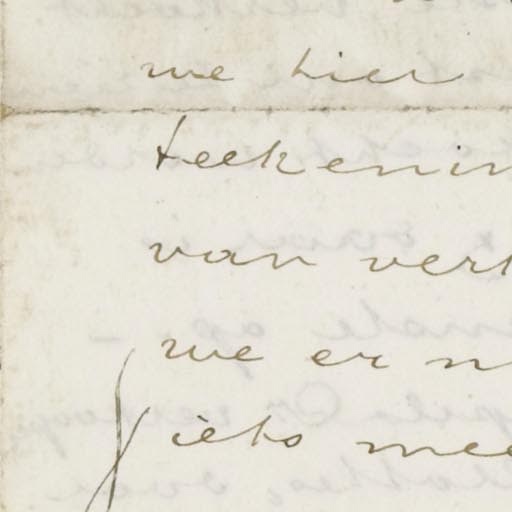 we hier
teekenin
van verk
we er n
iets mee